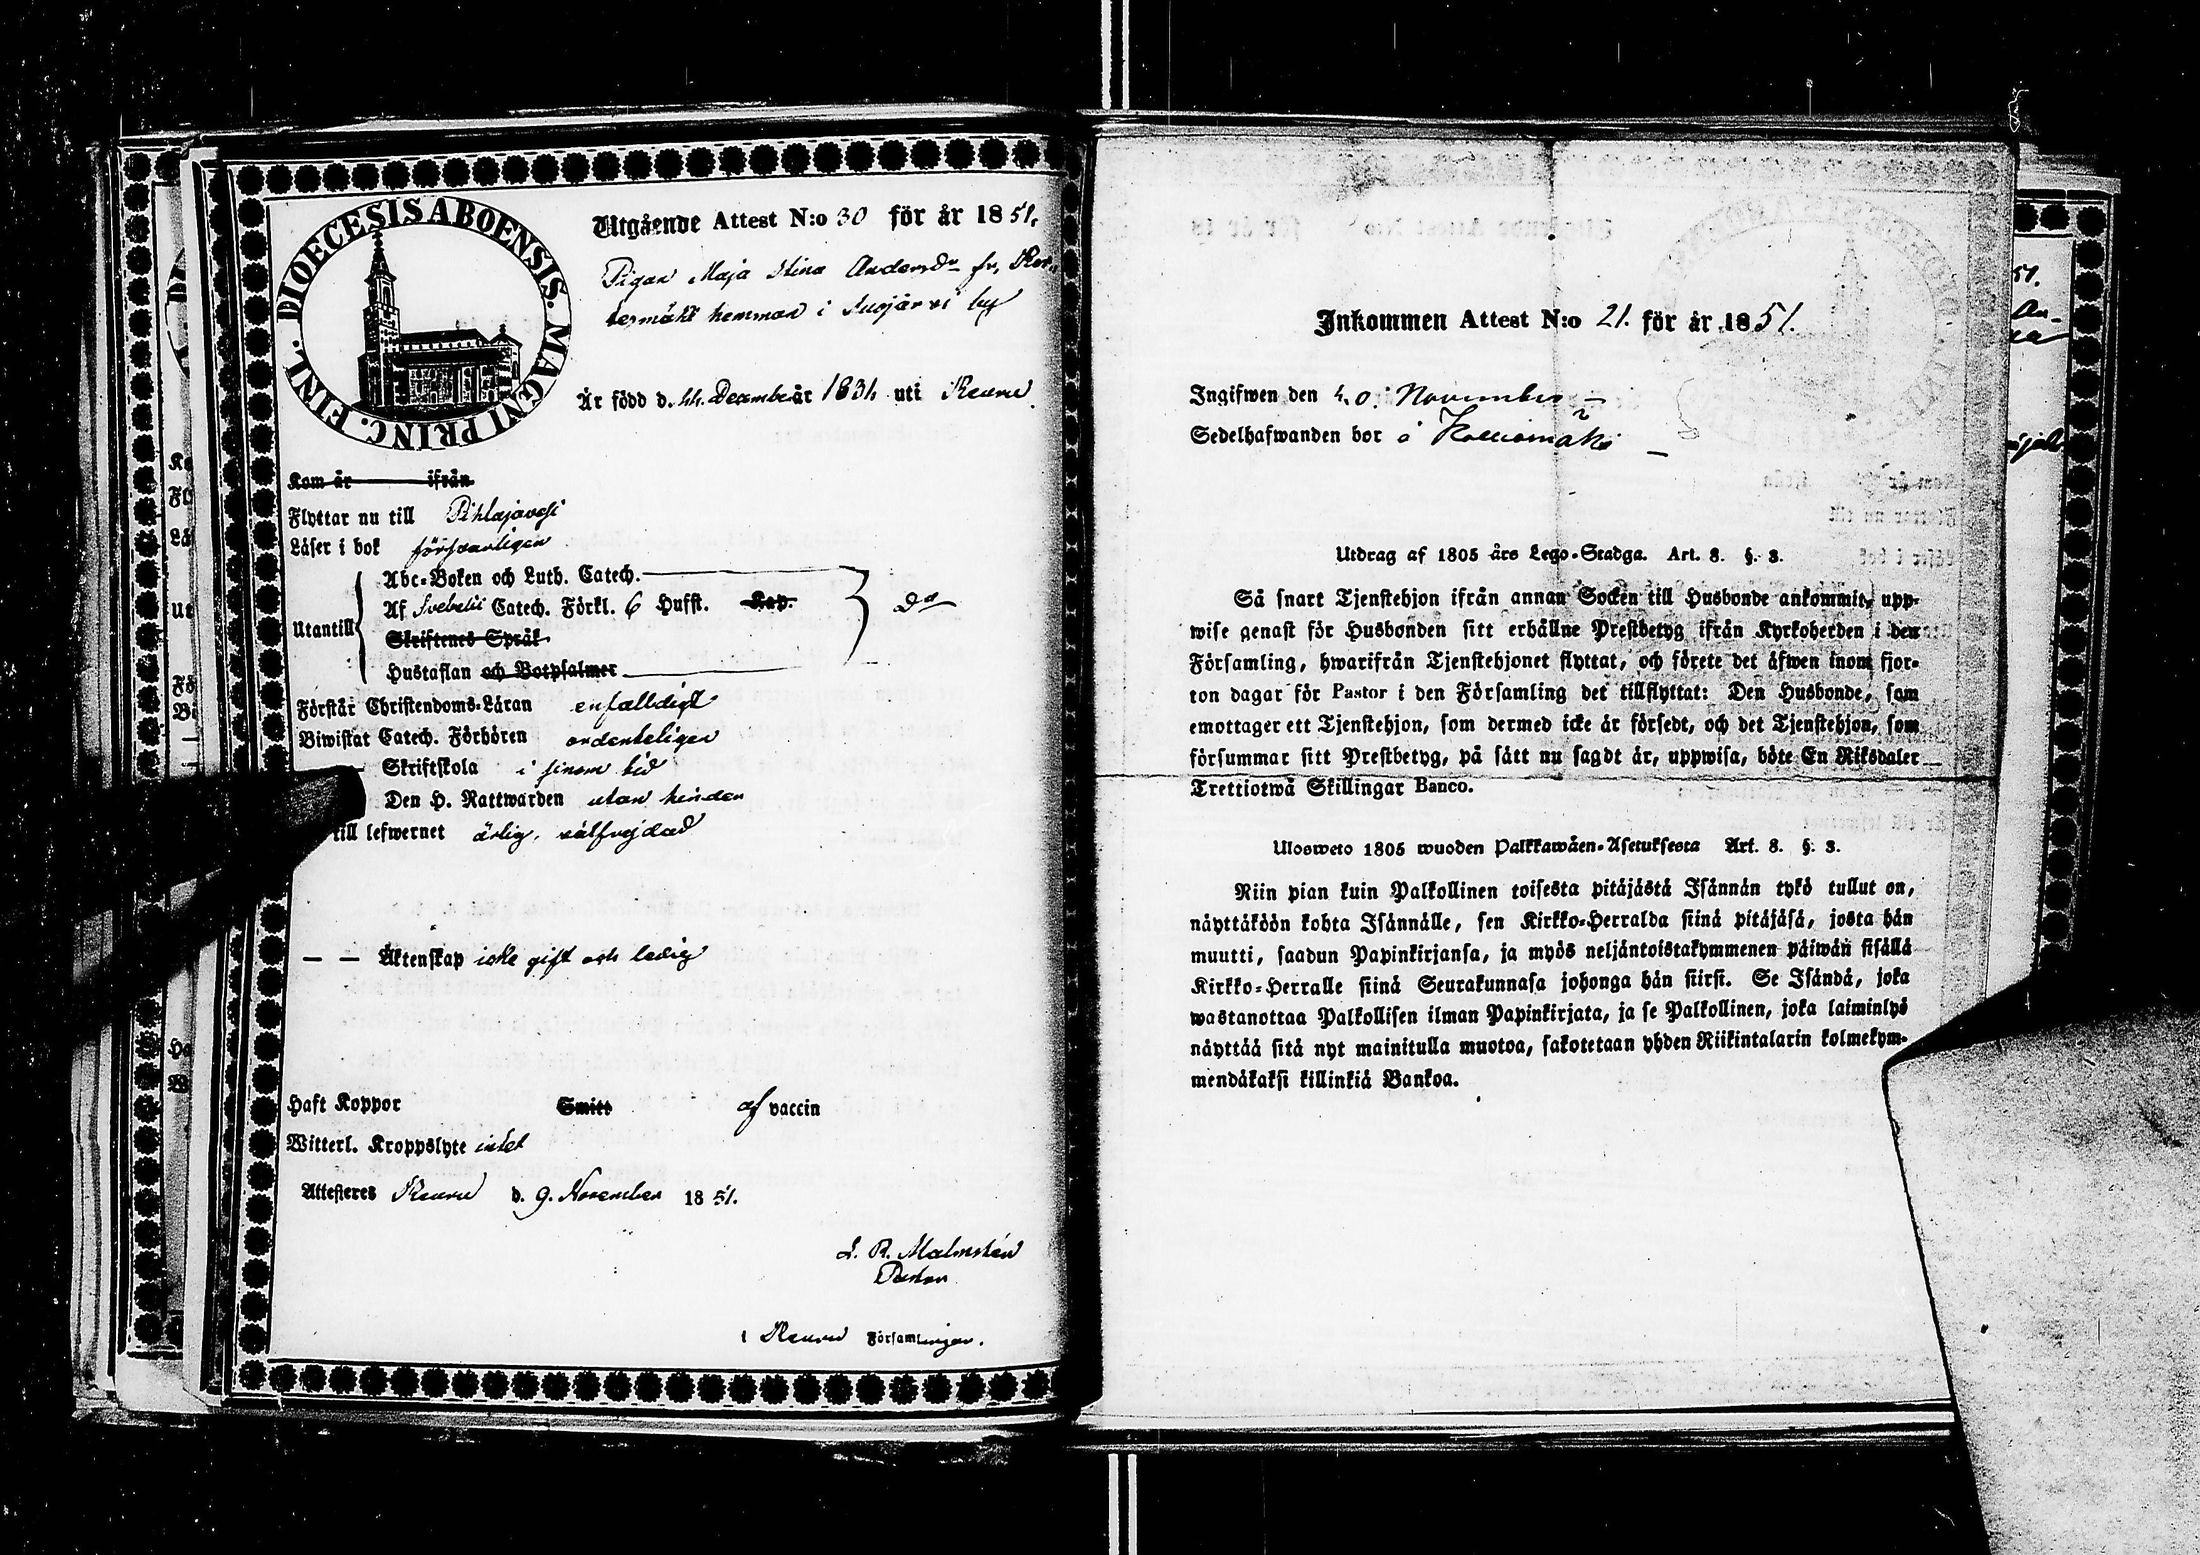 DIOECESIS ABOENSIS. MAGNI PRINC. FINL.
Utgående Attest N:o 30 för år 1851.
Pigan Maja Stina Andersdr fr. Kor-
hemman i Suojärvi by
Är född d. Decemb. år 1831 uti Keuru
Kom år ifrån
Flyttar nu till Pihlajavesi
Läser i bok försvarligen
Utantill
Abc-Boken och Luth. Catech.
Af Svebelii Catech. Förkl. 6 Hufst. Kap.
Do
Skriftenes Språk
Hustaflan och Botpsalmer
Förstår Christendoms-Läran enfalldigt
Biwistat Catech. Förhören ordenteligen
Skriftskola i sinom tid
Den H. Nattwarden utan hinder
till lefwernet ärlig, välfrejdad
— — Äktenskap icke gift och ledig
Haft Koppor Smitt af vaccin
Witterl. Kroppslyte intet
Attesteres Keuru d. 9. November 1851.
Malmstén
Pastor
i Keuru Församlingen.
Inkommen Attest N:o 21. för år 1851.
Ingifwen den November
Sedelhafwanden bor å
Utdrag af 1805 års Lego-Stadga. Art. 8. §. 3.
Så snart Tjenstehjon ifrån annan Socken till Husbonde ankommit, upp-
wise genast för Husbonden sitt erhållne Prestbetyg ifrån Kyrkoherden i den
Församling, hwarifrån Tjenstehjonet flyttat, och förete det äfwen inom fjor-
ton dagar för Pastor i den Församling det tillflyttat: Den Husbonde, som
emottager ett Tjenstehjon, som dermed icke är försedt, och det Tjenstehjon, som
försummar sitt Prestbetyg, på sätt nu sagdt är, uppwisa, böte En Riksdaler
Trettiotwå Skillingar Banco.
Ulosweto 1805 wuoden Palkkawäen-Asetuksesta Art. 8. §. 3.
Niin pian kuin Palkollinen toisesta pitäjästä Isännän tykö tullut on,
näyttäköön kohta Isännälle, sen Kirkko-Herralda siinä pitäjäsä, josta hän
muutti, saadun Papinkirjansa, ja myös neljäntoistakymmenen päiwän sisällä
Kirkko-Herralle siinä Seurakunnasa johonga hän siirsi. Se Isändä, joka
wastanottaa Palkollisen ilman Papinkirjata, ja se Palkollinen, joka laiminlyö
näyttää sitä nyt mainitulla muotoa, sakotetaan yhden Riikintalarin kolmekym-
mendäkaksi killinkiä Bankoa.